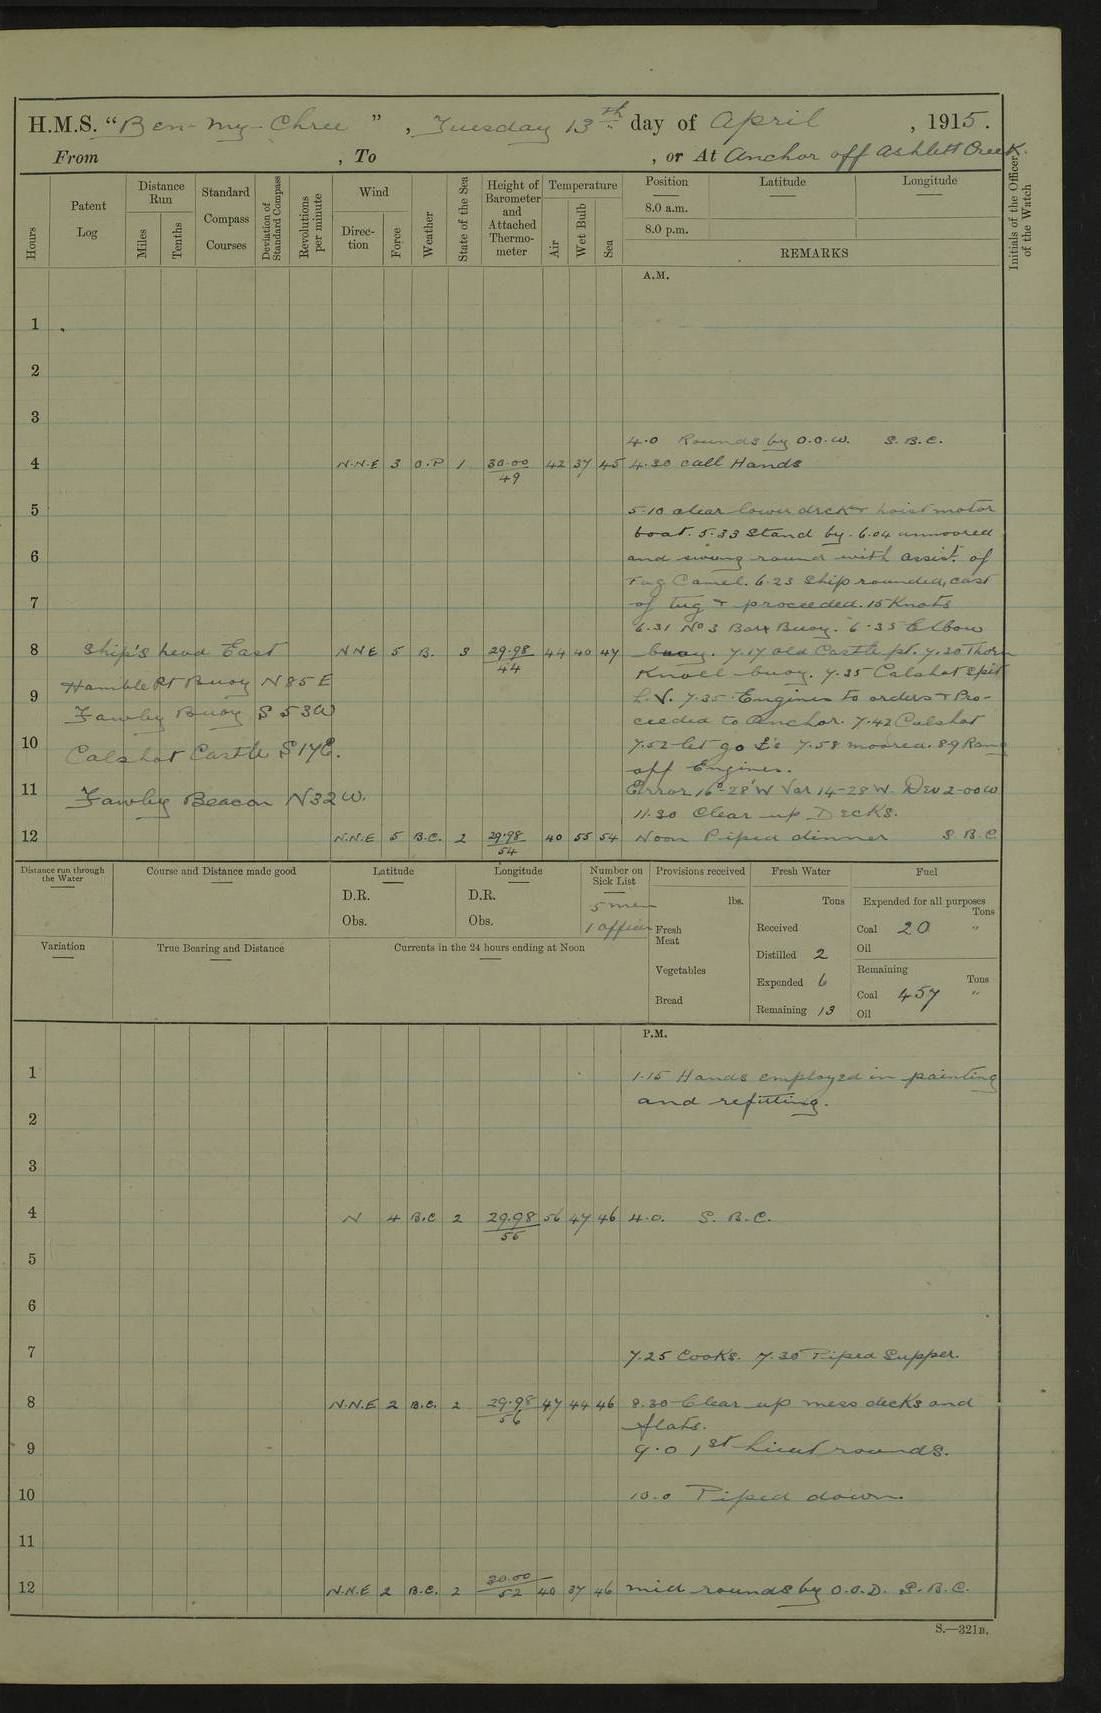 H.M.S. “Ben-my-Chree” , Tuesday 13th day of April , 1915.
From , To , or At Anchor off Ashlett Creek.
Hours
Patent Log
Distance Run
Miles
Tenths
Standard Compass Courses
Deviation of Standard Compass
Revolutions per minute
Wind
Direction
Force
Weather
State of the Sea
Height of Barometer and Attached Thermometer
Temperature
Air
Wet Bulb
Sea
Position
Latitude
Longitude
8.0 a.m.
8.0 p.m.
REMARKS
Initials of the Officer of the Watch
A.M.
1
2
3
4.0 Rounds by O.O.W. S.B.C.
4 N.N.E 3 O.P 1 30.00/49 42 37 45 4.30 call Hands
5 5.10 clear lower deck & hoist motor
boat. 5.33 Stand by. 6.04 unmoored
6 and swung round with assist. of
Tug Camel. 6.23 Ship rounded, cast
7 of tug & proceeded. 15 Knots
6.31 No 3 Bar Buoy. 6.35 Elbow
8 Ship's head East NNE 5 B. 3 29.98/44 44 40 47 buoy. 7.17 old Castle pt. 7.30 Thorn
Hamble Pt Buoy N85E Knoll buoy. 7.35 Calshot Spit
9 Fawley Buoy S 53W L.V. 7.35 Engines to orders & Pro-
ceeded to Anchor. 7.42 Calshot
10 Calshot Castle S17E. 7.52 let go 7.58 moored. 8.9 Rang
off Engines.
11 Fawley Beacon N32W. Error 16°-28'W Var 14-28W. Dev 2-00W
11.30 Clear up Decks.
12 N.N.E 5 B.C. 2 29.98/54 40 55 54 Noon Piped dinner S.B.C
Distance run through the Water
Course and Distance made good
Latitude
D.R.
Obs.
Longitude
D.R.
Obs.
Number on Sick List
5 men
1 officer
Provisions received
lbs.
Fresh Meat
Vegetables
Bread
Fresh Water
Tons
Received
Distilled 2
Expended 6
Remaining 13
Fuel
Expended for all purposes
Tons
Coal 20 "
Oil
Remaining
Tons
Coal 457 "
Oil
Variation
True Bearing and Distance
Currents in the 24 hours ending at Noon
P.M.
1 1.15 Hands employed in painting
and refitting.
2
3
4 N 4 B.C 2 29.98/56 56 47 46 4.0. S.B.C.
5
6
7 7.25 Cooks. 7.30 Piped Supper.
8 N.N.E 2 B.C. 2 29.98/56 47 44 46 8.30 Clear up mess decks and
flats.
9 9.0 1st Lieut rounds.
10 10.0 Piped down.
11
12 N.N.E 2 B.C. 2 30.00/52 40 37 46 mid rounds by O.O.D. S.B.C.
S.—321B.